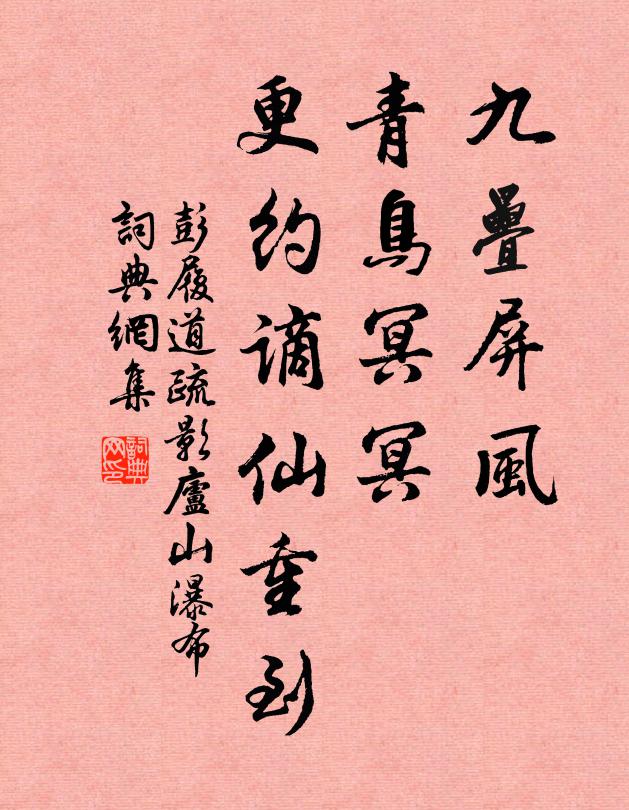 九疊屏風
青鳥冥冥
更約謫仙重到
彭履道疏影廬山瀑布
詞典網集
詞典
网印